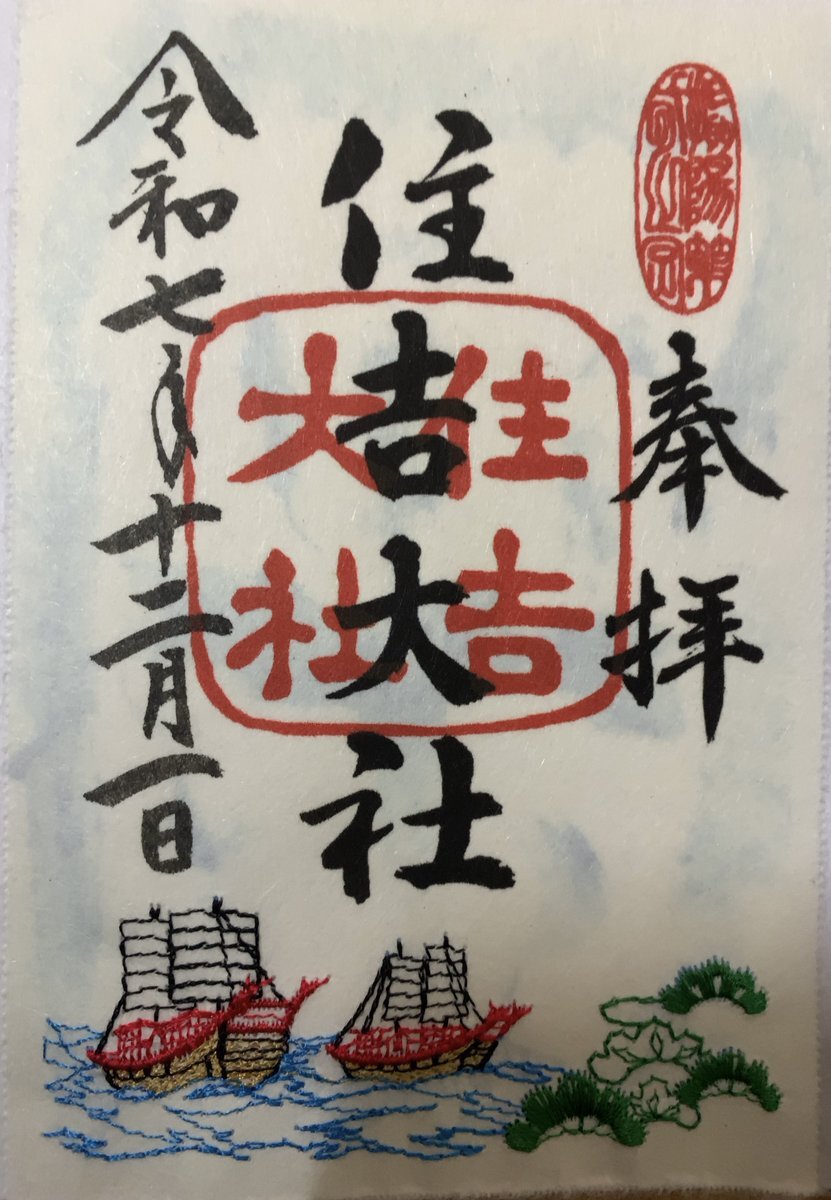 奉拝
住吉大社
住吉
大社
令和七年十二月一日